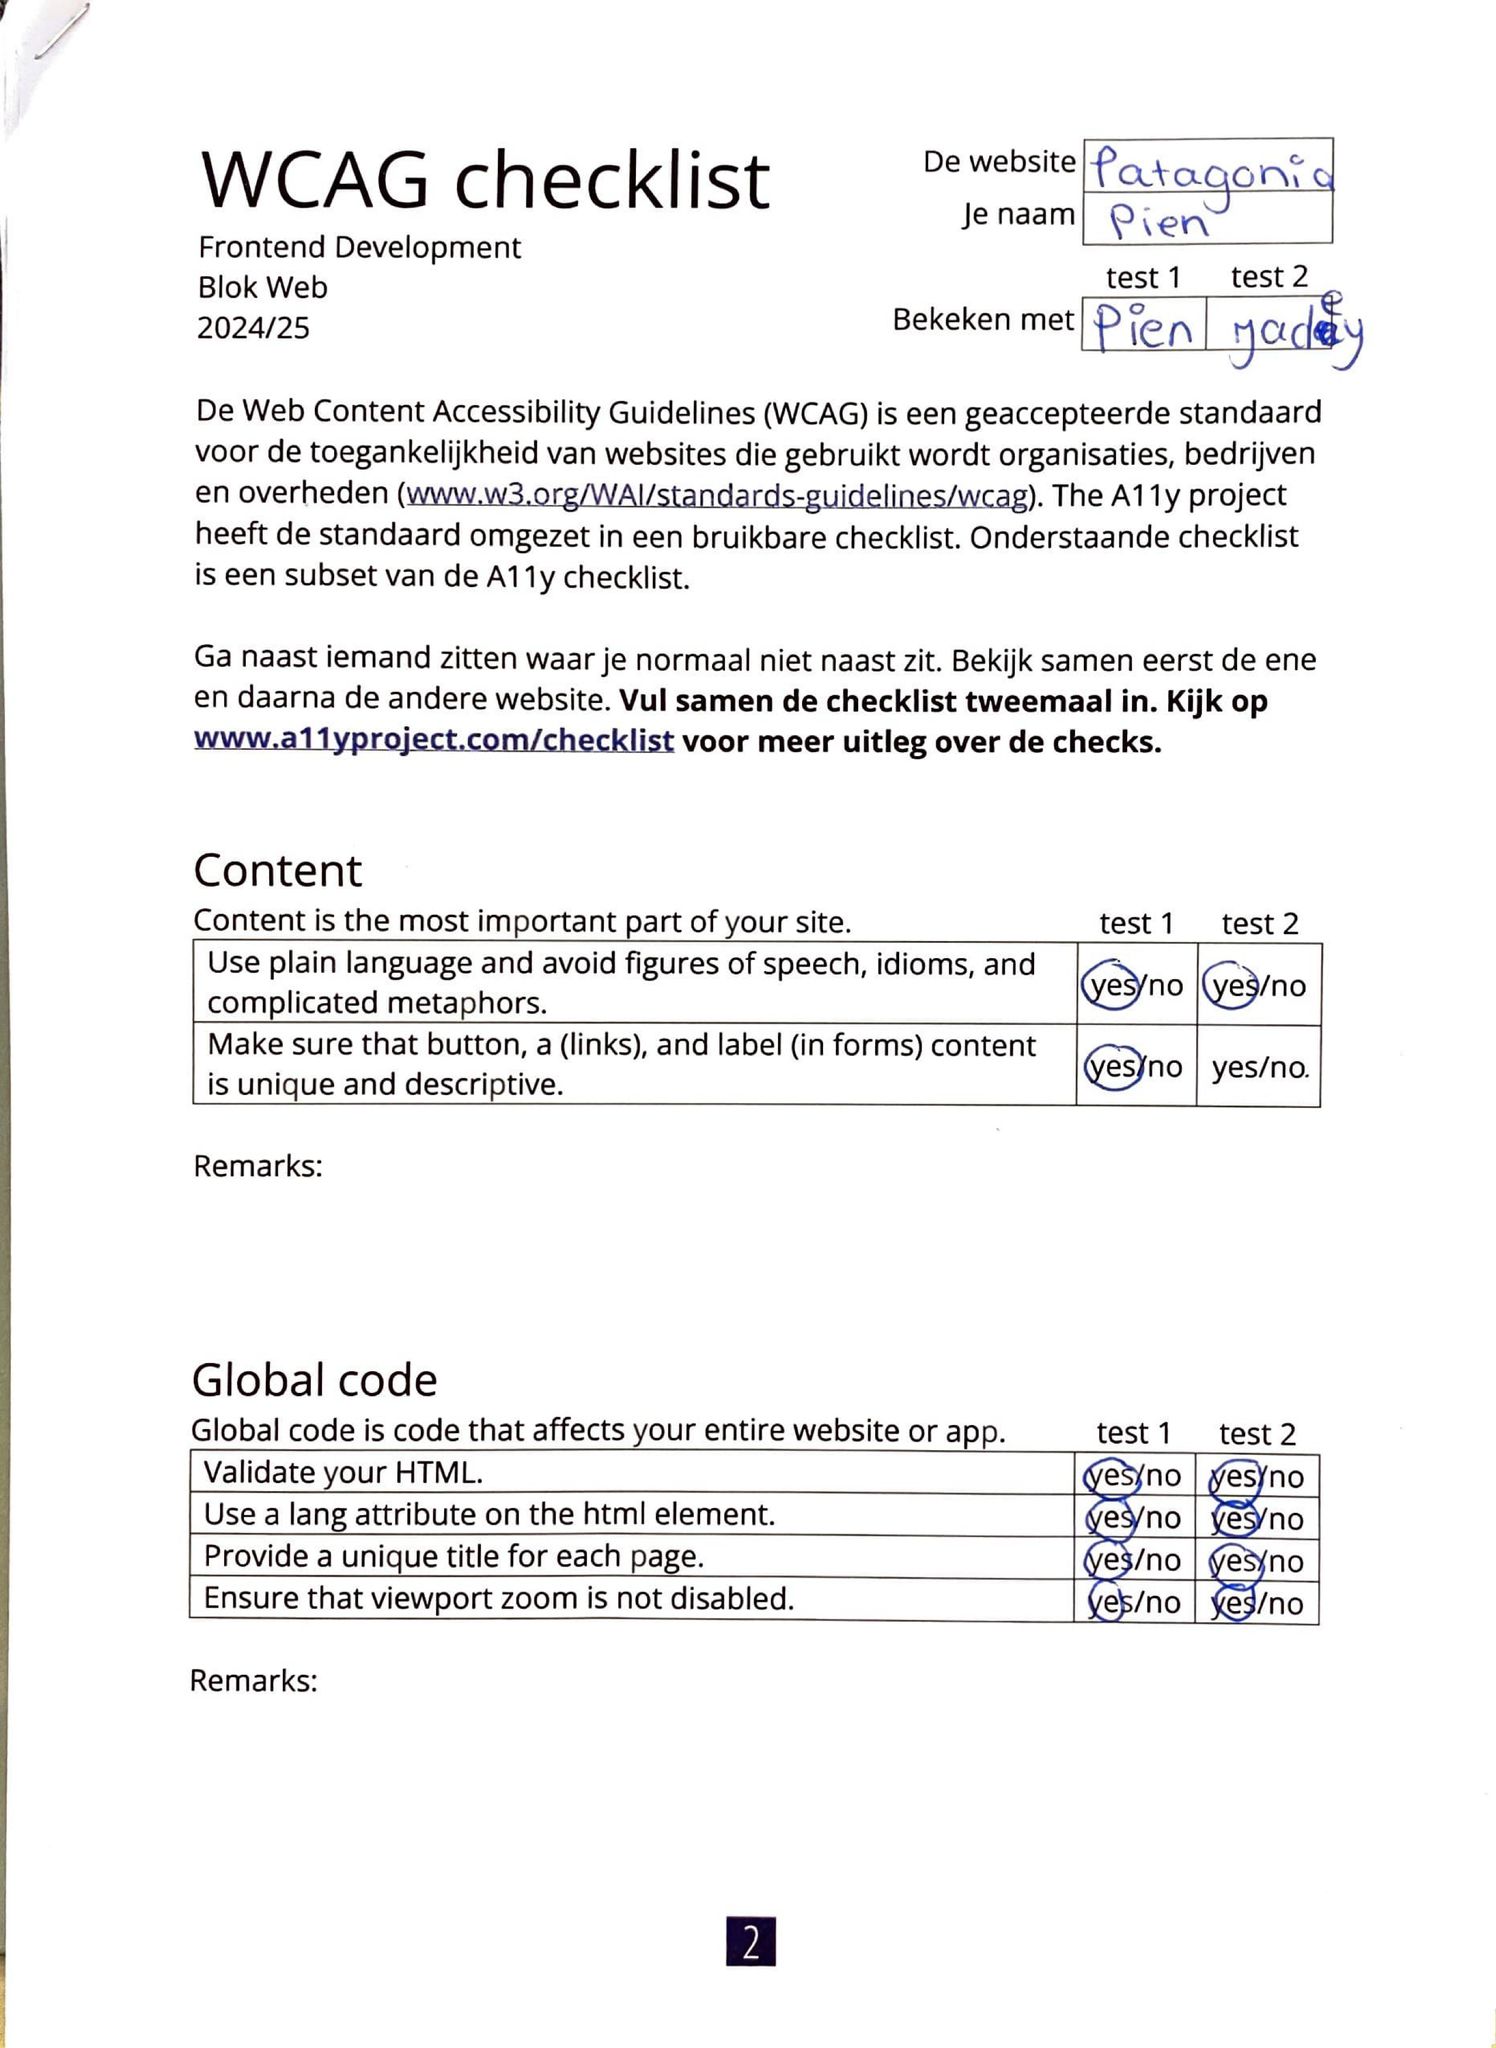 WCAG checklist
Frontend Development
Blok Web
2024/25
De website Patagonia
Je naam Pien
test 1 test 2
Bekeken met Pien
De Web Content Accessibility Guidelines (WCAG) is een geaccepteerde standaard
voor de toegankelijkheid van websites die gebruikt wordt organisaties, bedrijven
en overheden (www.w3.org/WAI/standards-guidelines/wcag). The A11y project
heeft de standaard omgezet in een bruikbare checklist. Onderstaande checklist
is een subset van de A11y checklist.
Ga naast iemand zitten waar je normaal niet naast zit. Bekijk samen eerst de ene
en daarna de andere website. Vul samen de checklist tweemaal in. Kijk op
www.a11yproject.com/checklist voor meer uitleg over de checks.
Content
Content is the most important part of your site. test 1 test 2
Use plain language and avoid figures of speech, idioms, and
complicated metaphors. yes/no yes/no
Make sure that button, a (links), and label (in forms) content
is unique and descriptive. yes/no yes/no.
Remarks:
Global code
Global code is code that affects your entire website or app. test 1 test 2
Validate your HTML. yes/no yes/no
Use a lang attribute on the html element. yes/no yes/no
Provide a unique title for each page. yes/no yes/no
Ensure that viewport zoom is not disabled. yes/no yes/no
Remarks:
2